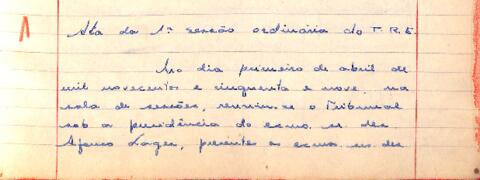 1
Ata da 1ª sessão ordinária do T.R.E.
No dia primeiro de abril de
mil novecentos e cinquenta e nove, na
sala de sessões, reuniu-se o Tribunal
sob a presidência do exmo. sr. des.
Afonso Lages, presente os exmos. srs. des